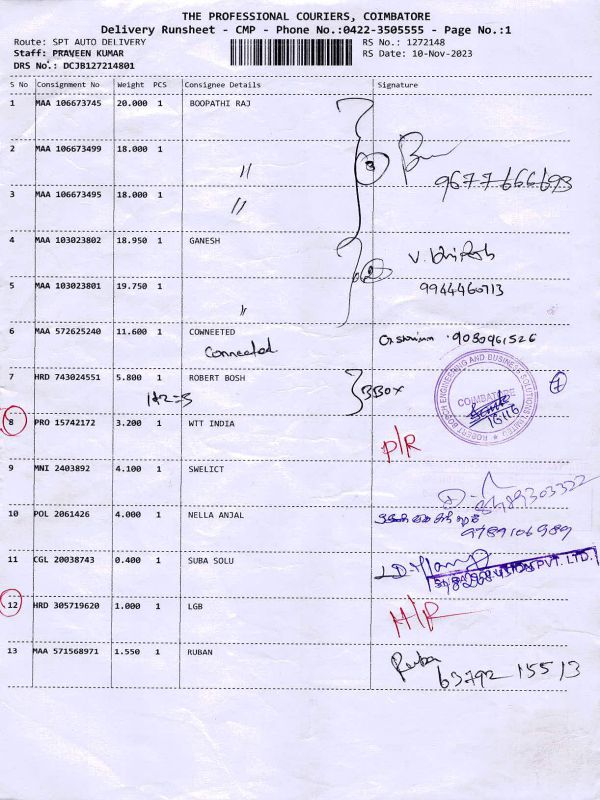 THE PROFESSIONAL COURIERS, COIMBATORE
Delivery Runsheet - CMP - Phone No.:0422-3505555 - Page No.:1
Route: SPT AUTO DELIVERY RS No.: 1272148
Staff: PRAVEEN KUMAR RS Date: 10-Nov-2023
DRS No.: DCJB127214801
S No Consignment No Weight PCS Consignee Details Signature
1 MAA 106673745 20.000 1 BOOPATHI RAJ
2 MAA 106673499 18.000 1 〃 3
9677666693
3 MAA 106673495 18.000 1 〃
4 MAA 103023802 18.950 1 GANESH
9944460713
5 MAA 103023801 19.750 1 〃
6 MAA 572625240 11.600 1 COWNEETED 9080961526
Conneeted
7 HRD 743024551 5.800 1 ROBERT BOSH 3BOX 7
1+2=3
ROBERT BOSCH ENGINEERING AND BUSINESS SOLUTIONS LIMITED
COIMBATORE
8 PRO 15742172 3.200 1 WTT INDIA P/R
9 MNI 2403892 4.100 1 SWELICT
10 POL 2061426 4.000 1 NELLA ANJAL
9789106989
11 CGL 20038743 0.400 1 SUBA SOLU
PVT. LTD.
12 HRD 305719620 1.000 1 LGB H/R
13 MAA 571568971 1.550 1 RUBAN Ruba
63792 15513